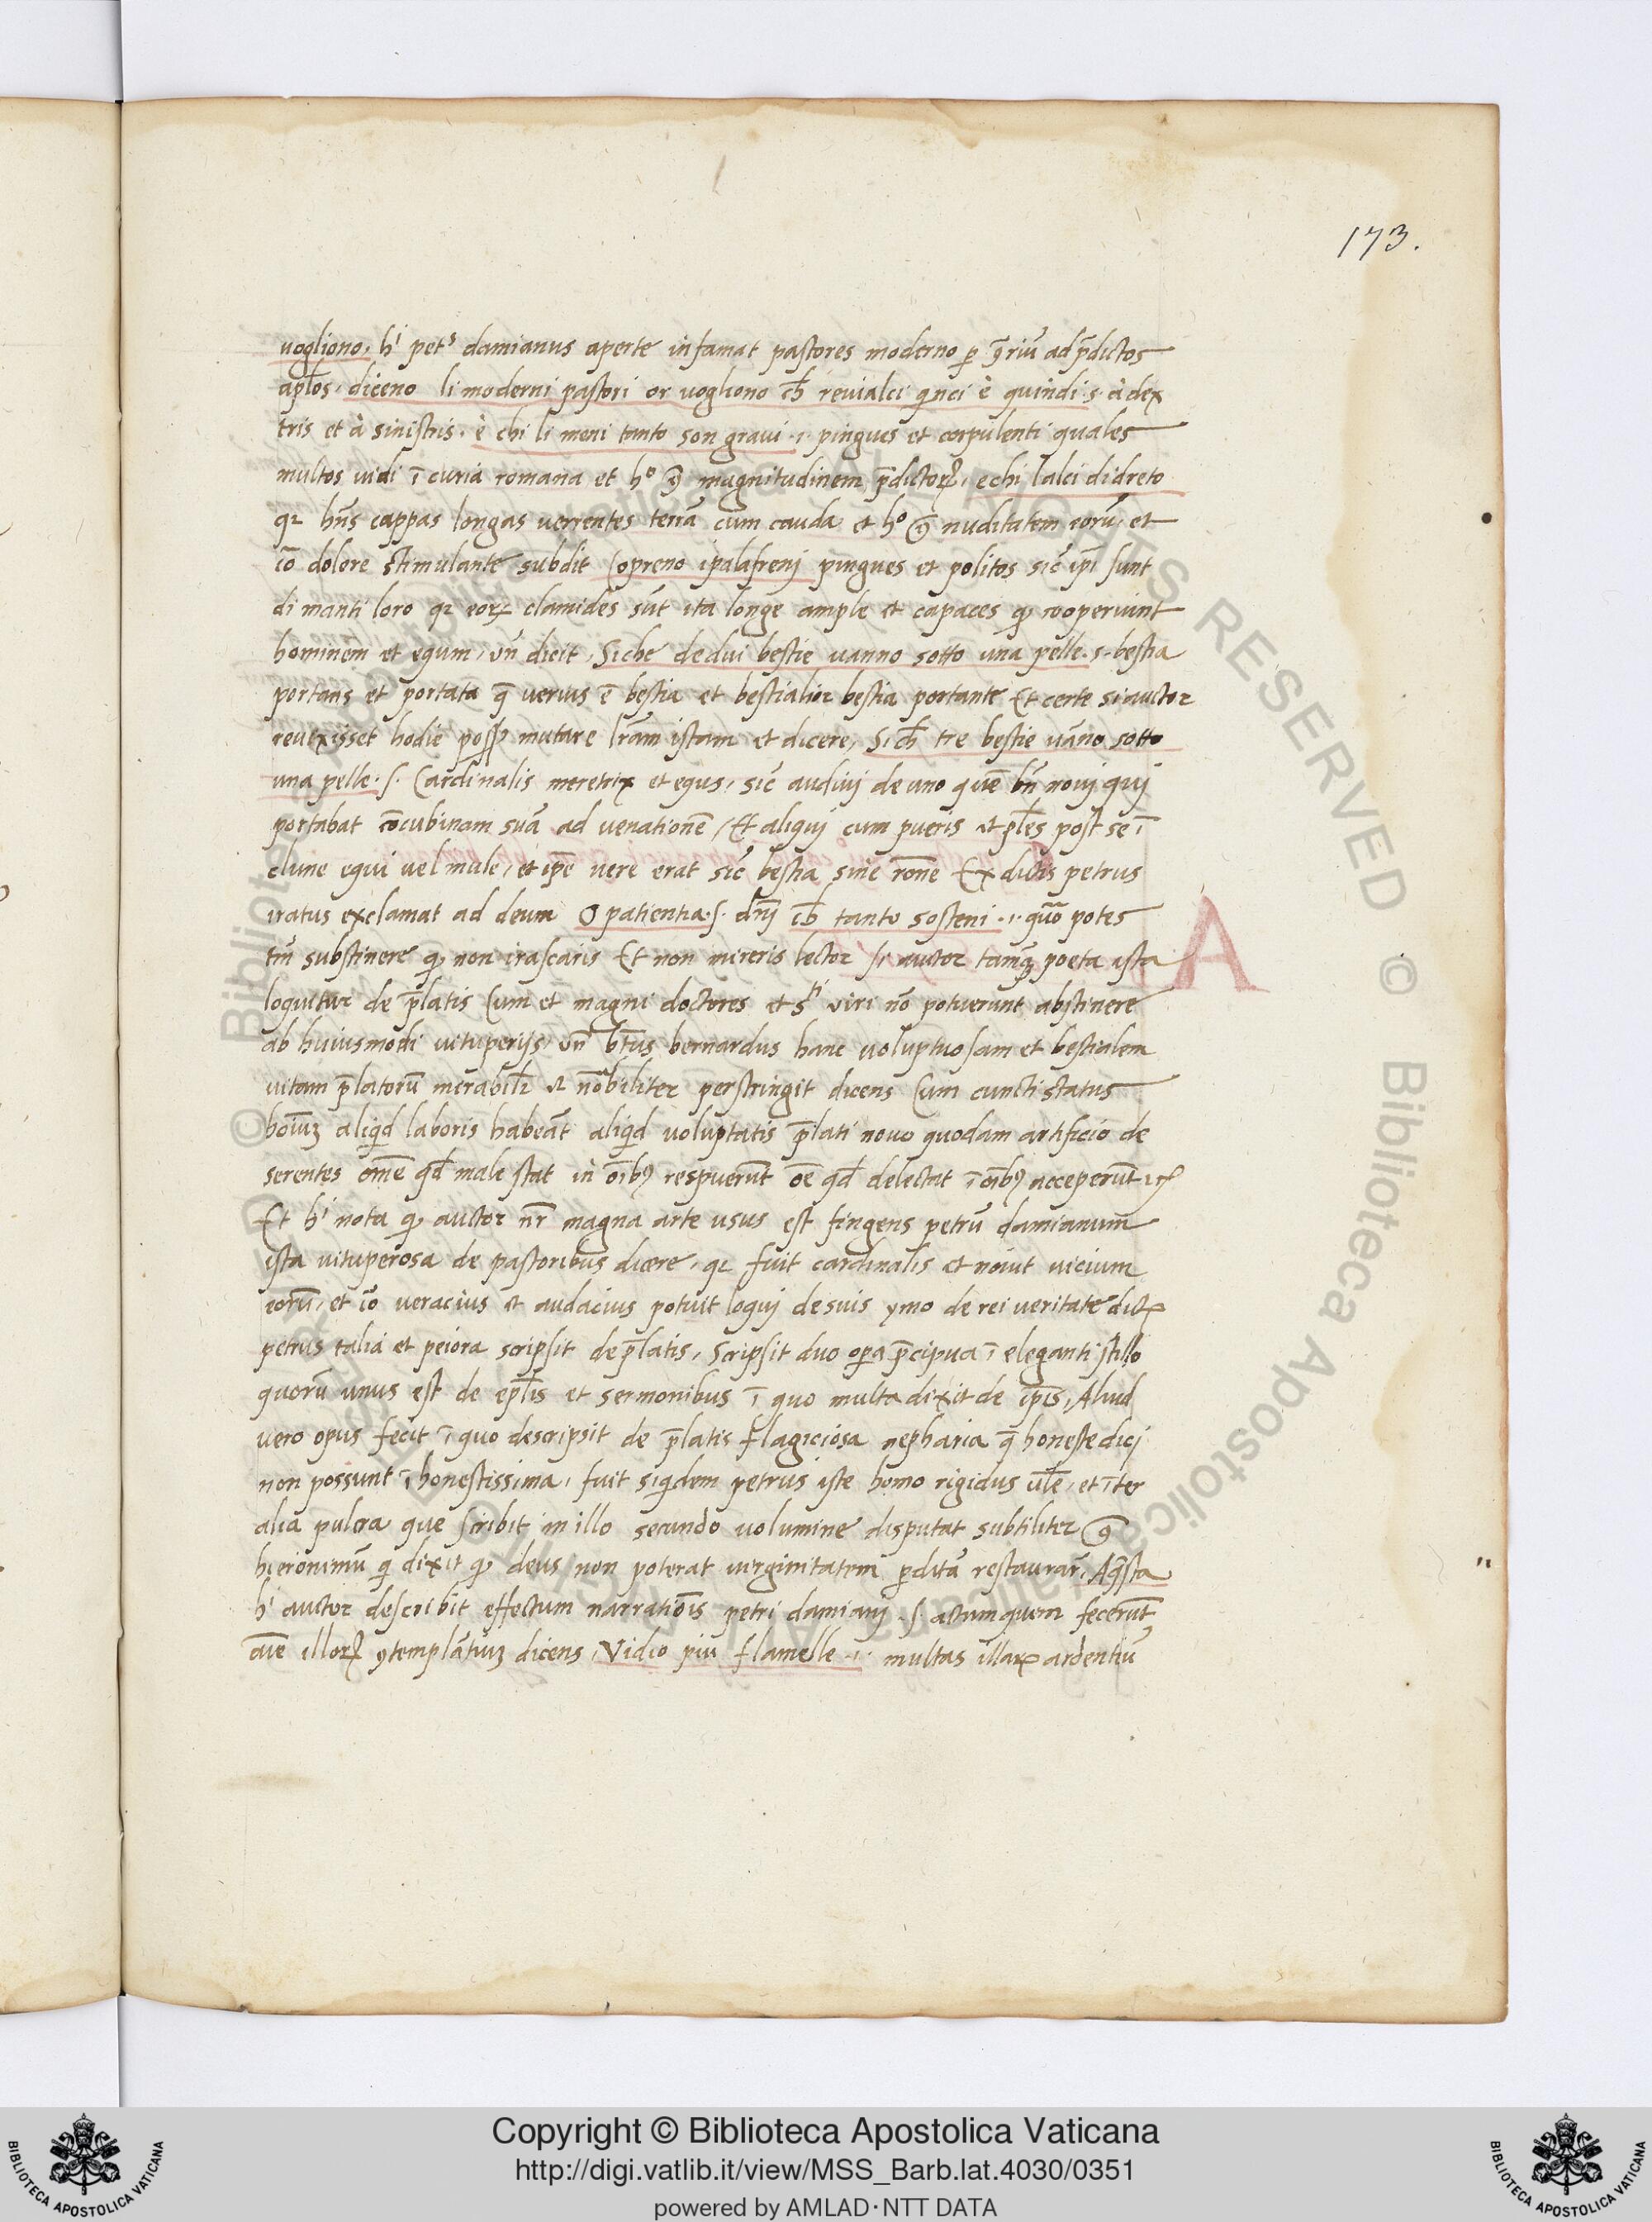 173.
vogliono, hı̓ petˢ damianus aperte infamat pastores moderno ꝑ ꝯ̄riū ad p̄dictos
apl̄os, diceno li moderni pastori or vogliono ch̄ rivialci qinci è quindi .s. à dex
tris et à sinistris. è chi li meni tanto son gravi .i. pingues et corpulenti quales
multos vidi ī curia romana et hº magnitudinem p̄dictoꝝ, e chi lalci didreto
qꝛ hn̄s cappas longas verrentes terrā cum cauda et hº nuditatem eorū, et
iō dolore stimulante subdit Copreno ipalafrenj pingues et politos sic̄ ip̄i sunt
di manti loro qꝛ eoꝝ clamides sūt ita longe ample et capaces qꝫ cooperiunt
hominem et equm, vn̄ dicit, Siche dedui bestie vanno sotto una pelle .s. bestia
portans et portata q̄ verius ē bestia et bestialior bestia portante Et certe si auctor
revixisset hodie poss& mutare lr̄am istam et dicere, Sich̄ tre bestie vāno sotto
una pelle .s. Cardinalis meretrix et equs, sic̄ audivj de uno quē bn̄ novj quj
portabat cōcubinam suā ad venationē, Et aliquj cum pueris et pl̄es post se ī
clune equi vel mule, et ip̄e vere erat sic̄ bestia sine rōne Ex dictis petrus
iratus exclamat ad deum O patientia .s. dn̄j ch̄ tanto sostieni .i. quō potes
tm̄ substinere qꝫ non irascaris Et non mireris lector si auctor tamqꝫ poeta ista
loquitur de p̄latis Cum et magni doctores et sᵗⁱ viri nō potuerunt abstinere
ab huiusmodi vituperijs, vn̄ bt̄us bernardus hanc voluptuosam et bestialem
vitam p̄latorū mirabilꝛ et notabiliter perstringit dicens Cum cuncti status
hoı̄uꝫ aliqd laboris habeāt aliqd voluptatis p̄lati novo quodam artificio de
serentes omē qd̄ male stat in oı̄bꝰ respuerūt oē qd̄ delectat ī oı̄bꝰ acceperūt
Et hı̓ nota qꝫ auctor nr̄ magna arte usus est fingens petrū damianum
ista vituperosa de pastoribus dicere, qꝛ fuit cardinalis et novit vicium
eorū, et iō veracius et audacius potuit loquj de suis ymo de rei veritate
petrus talia et peiora scripsit de p̄latis, Scripsit duo oꝑa p̄cipua ī eleganti stillo
quorū unus est de epl̄is et sermonibus ī quo multa dixit de ip̄is, Aliud
vero opus fecit ī quo descripsit de p̄latis flagiciosa nepharia q̄ honeste dicj
non possunt īhonestissima, fuit siqdem petrus iste homo rigidus vl̄e, et īter
alia pulcra que scribit in illo secundo volumine disputat subtiliter
hieronimū qi dixit qꝫ deus non poterat virginitatem ꝑditā restaurar̄, Aq̄sta
hı̓ auctor describit effectum narratiōis petri damianj .s. actum quem fecerūt
aīe illoꝝ ꝯtemplātiuꝫ dicens, Vidio piu flamelle .i. multas illaꝝ ardentiū
A
Copyright © Biblioteca Apostolica Vaticana
http://digi.vatlib.it/view/MSS_Barb.lat.4030/0351
powered by AMLAD·NTT DATA